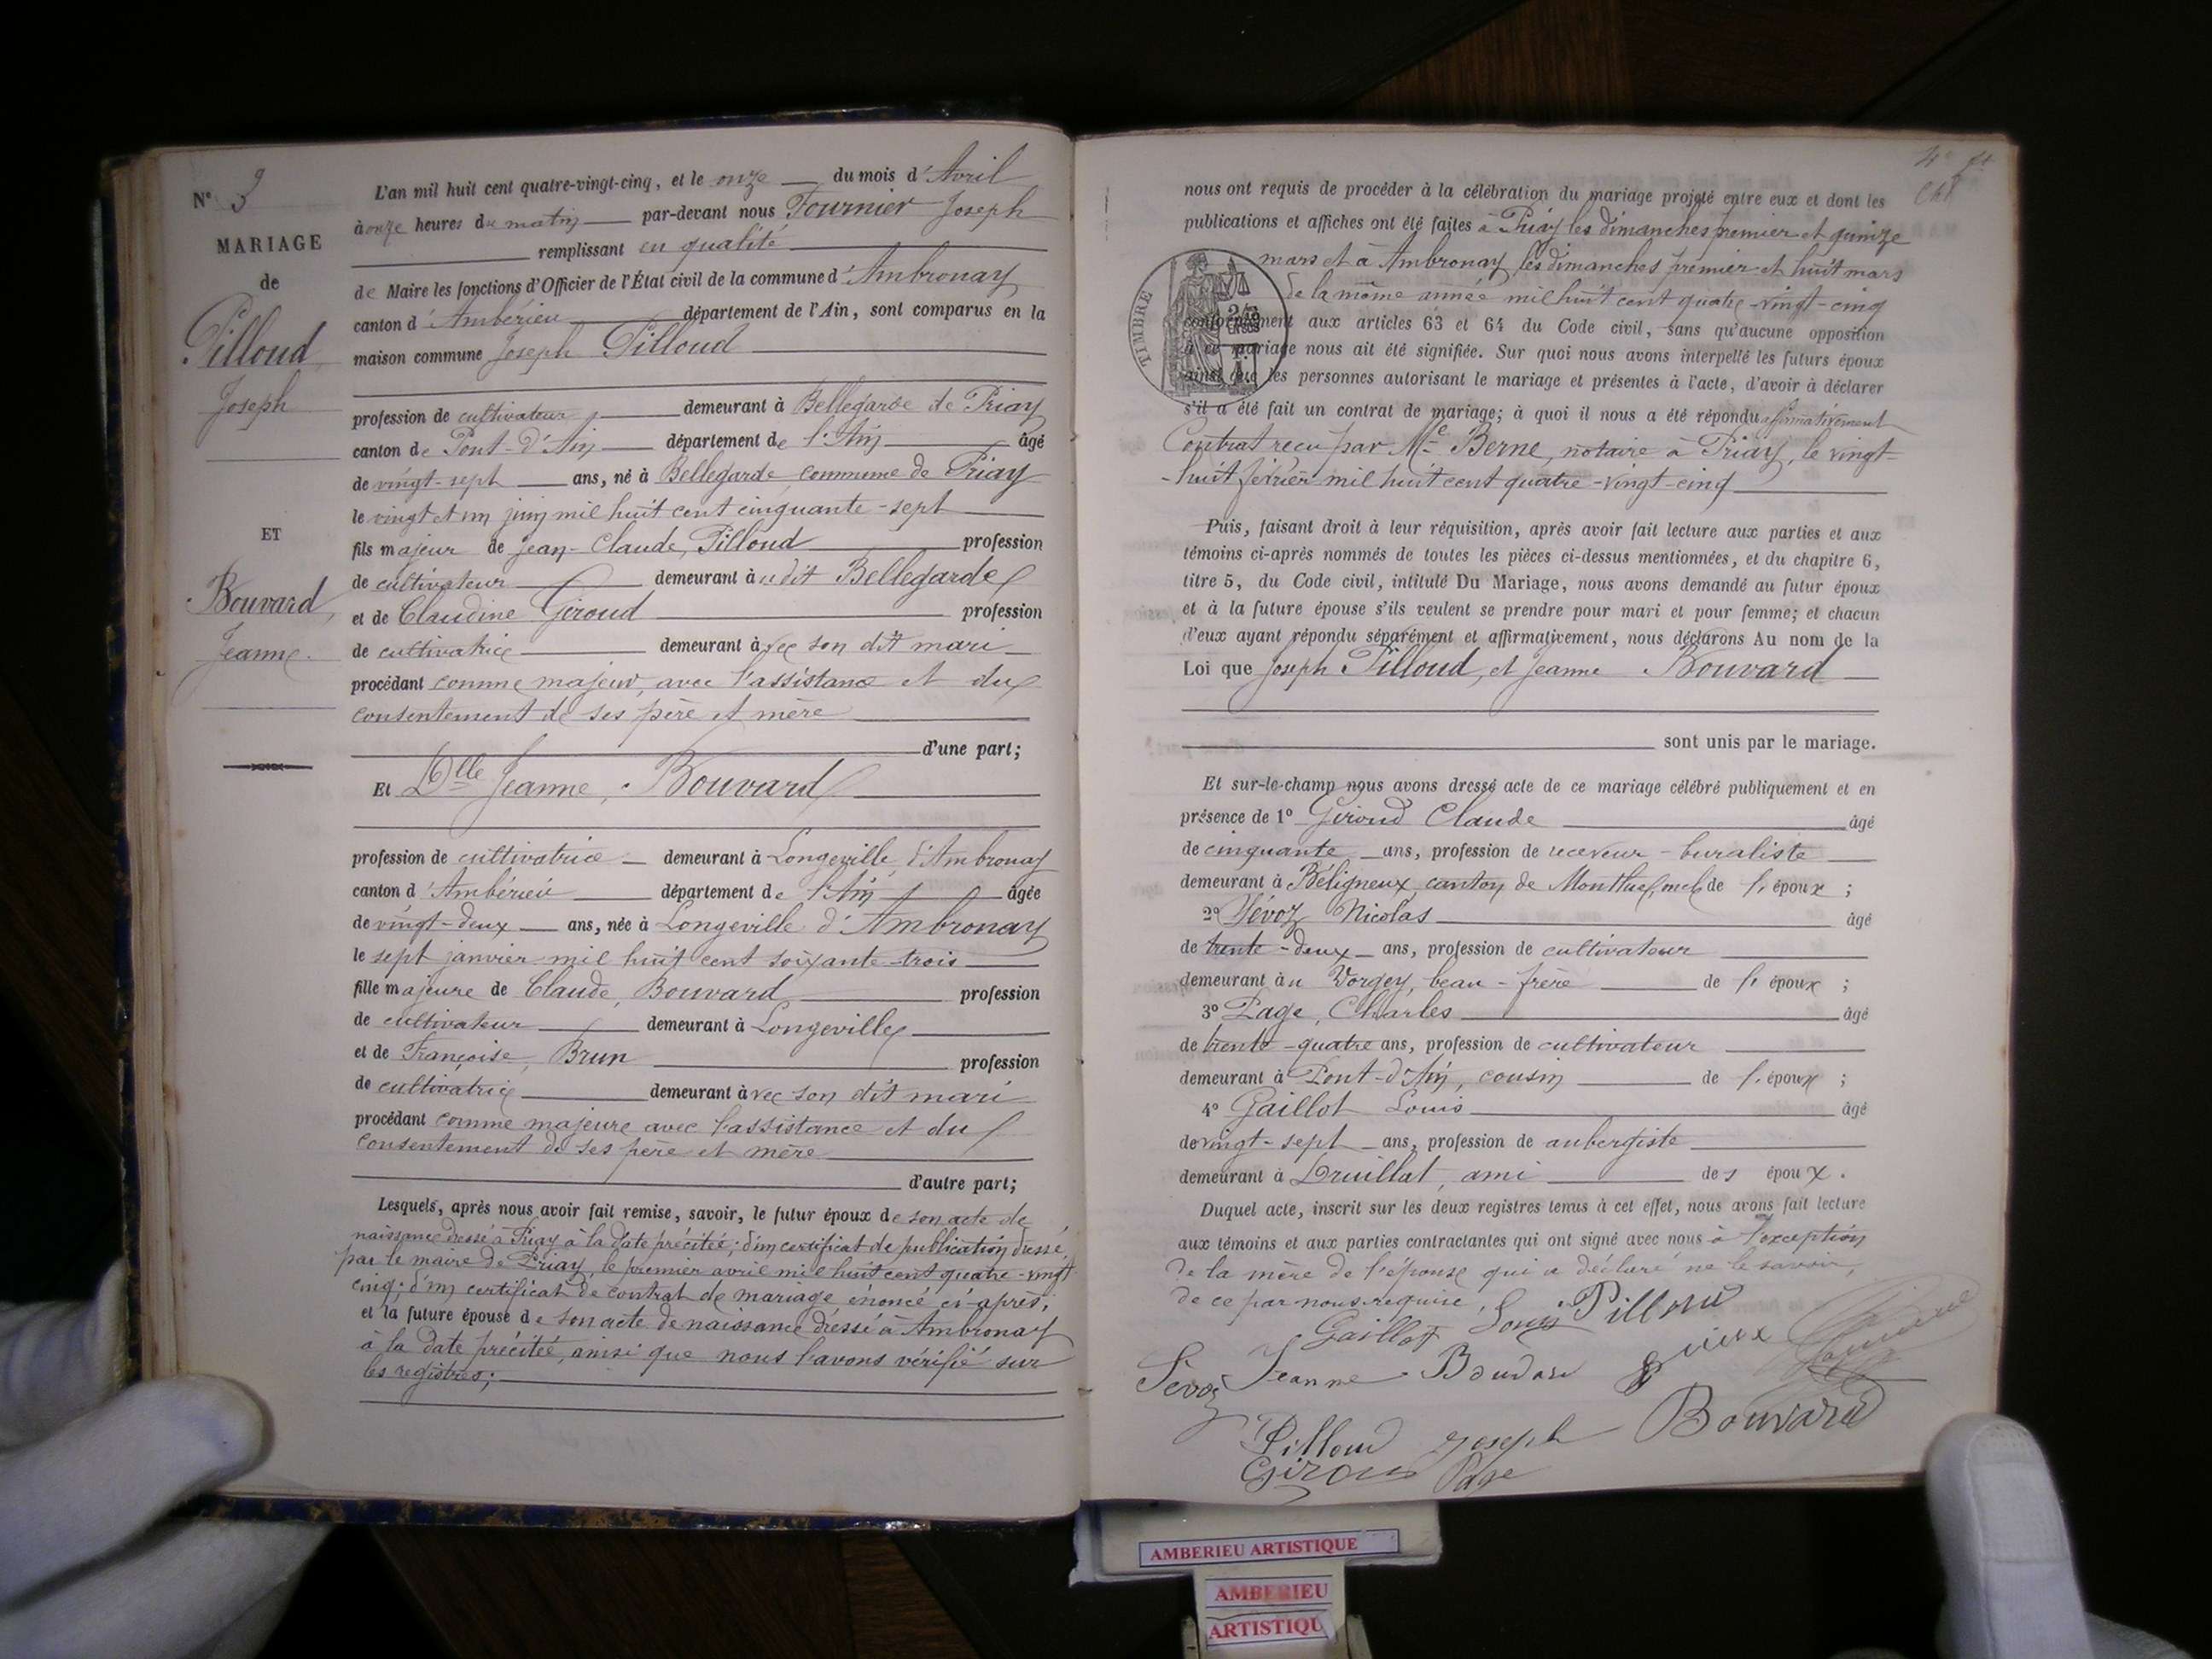 N° 3
MARIAGE
de
Pilloud
Joseph
ET
Bouvard,
Jeanne.
L'an mil huit cent quatre-vingt-cinq, et le onze du mois d'Avril
à onze heures du matin par-devant nous Fournier Joseph
remplissant en qualité
de Maire les fonctions d'Officier de l'État civil de la commune d'Ambronay
canton d'Ambérieu département de l'Ain, sont comparus en la
maison commune Joseph Pilloud
profession de cultivateur, demeurant à Bellegarde de Priay
canton de Pont-d'Ain département de l'Ain âgé
de vingt-sept ans, né à Bellegarde, commune de Priay
le vingt et un juin mil huit cent cinquante-sept
fils majeur de Jean-Claude, Pilloud profession
de cultivateur demeurant à udit Bellegarde
et de Claudine Giroud profession
de cultivatrice demeurant avec son dit mari
procédant comme majeur, avec l'assistance et du
consentement de ses père et mère
d'une part;
Et Dlle Jeanne, Bouvard
profession de cultivatrice demeurant à Longeville d'Ambronay
canton d'Ambérieu département de l'Ain âgée
de vingt-deux ans, née à Longeville d'Ambronay
le sept janvier mil huit cent soixante-trois
fille majeure de Claude, Bouvard profession
de cultivateur demeurant à Longeville
et de Françoise, Brun profession
de cultivatrice demeurant avec son dit mari
procédant comme majeure avec l'assistance et du
consentement de ses père et mère
d'autre part;
Lesquels, après nous avoir fait remise, savoir, le futur époux de son acte de
naissance dressé à Priay à la date précitée; d'un certificat de publication dressé
par le maire de Priay, le premier avril mil huit cent quatre-vingt
cinq; d'un certificat de contrat de mariage énoncé ci-après;
et la future épouse de son acte de naissance dressé à Ambronay
à la date précitée, ainsi que nous l'avons vérifié sur
les registres;
nous ont requis de procéder à la célébration du mariage projeté entre eux et dont les
publications et affiches ont été faites à Priay les dimanches premier et quinze
mars et à Ambronay les dimanches premier et huit mars
de la même année mil huit cent quatre-vingt-cinq
TIMBRE
conformément aux articles 63 et 64 du Code civil, sans qu'aucune opposition
à ce mariage nous ait été signifiée. Sur quoi nous avons interpellé les futurs époux
ainsi que les personnes autorisant le mariage et présentes à l'acte, d'avoir à déclarer
s'il a été fait un contrat de mariage; à quoi il nous a été répondu affirmativement
Contrat reçu par Me Berne, notaire à Priay, le vingt-
-huit février mil huit cent quatre-vingt-cinq
Puis, faisant droit à leur réquisition, après avoir fait lecture aux parties et aux
témoins ci-après nommés de toutes les pièces ci-dessus mentionnées, et du chapitre 6,
titre 5, du Code civil, intitulé Du Mariage, nous avons demandé au futur époux
et à la future épouse s'ils veulent se prendre pour mari et pour femme; et chacun
d'eux ayant répondu séparément et affirmativement, nous déclarons Au nom de la
Loi que Joseph Pilloud, et Jeanne Bouvard
sont unis par le mariage.
Et sur-le-champ nous avons dressé acte de ce mariage célébré publiquement et en
présence de 1° Giroud Claude âgé
de cinquante ans, profession de receveur-buraliste
demeurant à Béligneux, canton de Montluel, de l'époux;
2° Sévoz Nicolas âgé
de trente-deux ans, profession de cultivateur
demeurant au Vorgey, beau-frère de l'époux;
3° Page, Charles âgé
de trente-quatre ans, profession de cultivateur
demeurant à Pont-d'Ain, cousin de l'époux;
4° Gaillot Louis âgé
de vingt-sept ans, profession de aubergiste
demeurant à Druillat, ami des époux.
Duquel acte, inscrit sur les deux registres tenus à cet effet, nous avons fait lecture
aux témoins et aux parties contractantes qui ont signé avec nous à l'exception
de la mère de l'épouse qui a déclaré ne le savoir,
de ce par nous requise.
Gaillot Louis Pilloud
Sevoz Jeanne Bouvard
Pilloud Joseph Bouvard
Giroud Page
AMBERIEU ARTISTIQUE
AMBERIEU
ARTISTIQU